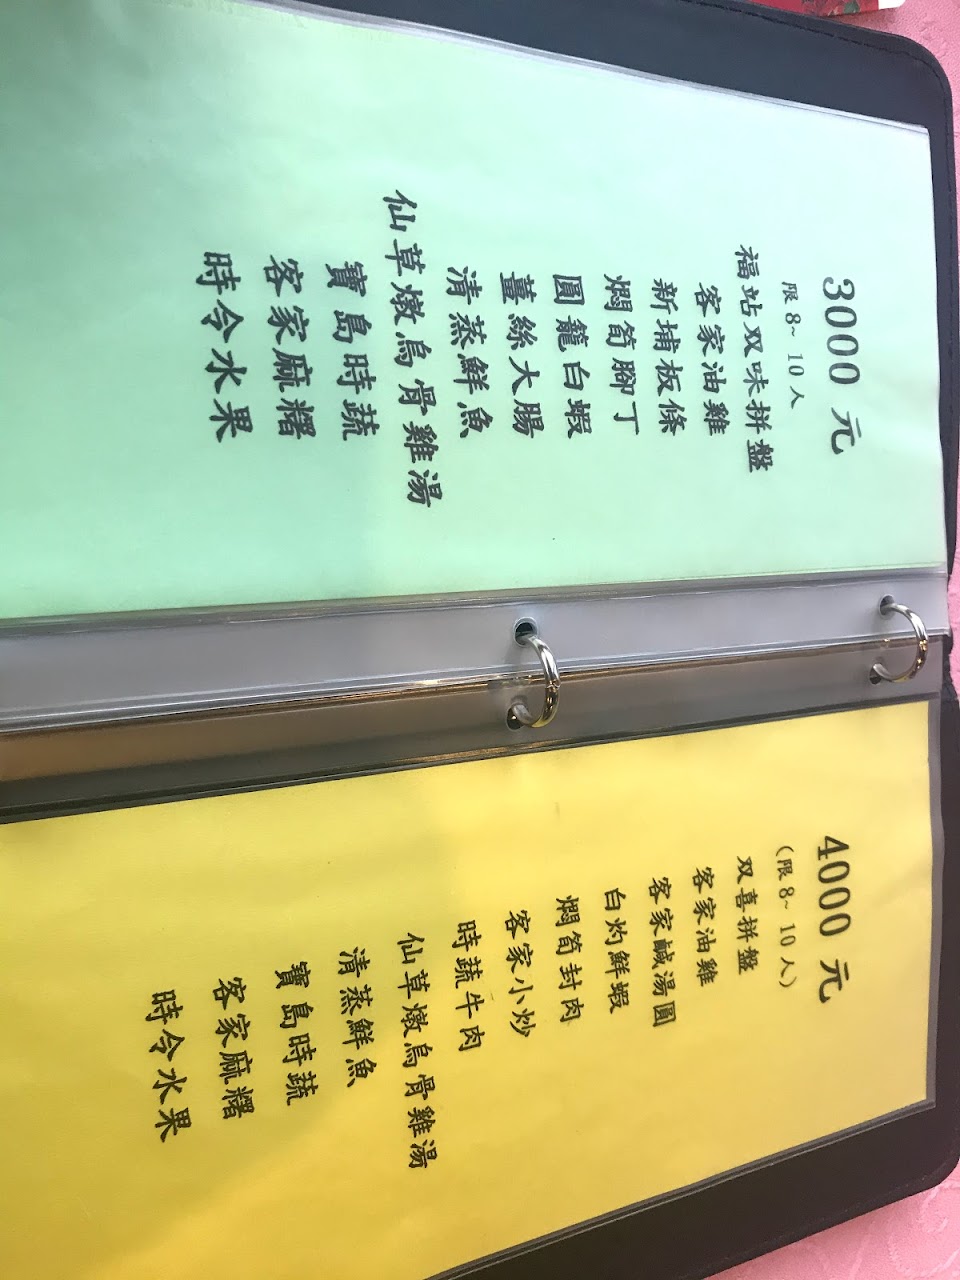 3000 元
限 8~ 10 人
福站双味拼盤
客家油雞
新埔板條
燜筍腳丁
圓籠白蝦
薑絲大腸
清蒸鮮魚
仙草燉烏骨雞湯
寶島時蔬
客家麻糬
時令水果
4000 元
(限 8~ 10 人)
双喜拼盤
客家油雞
客家鹹湯圓
白灼鮮蝦
燜筍封肉
客家小炒
時蔬牛肉
仙草燉烏骨雞湯
清蒸鮮魚
寶島時蔬
客家麻糬
時令水果